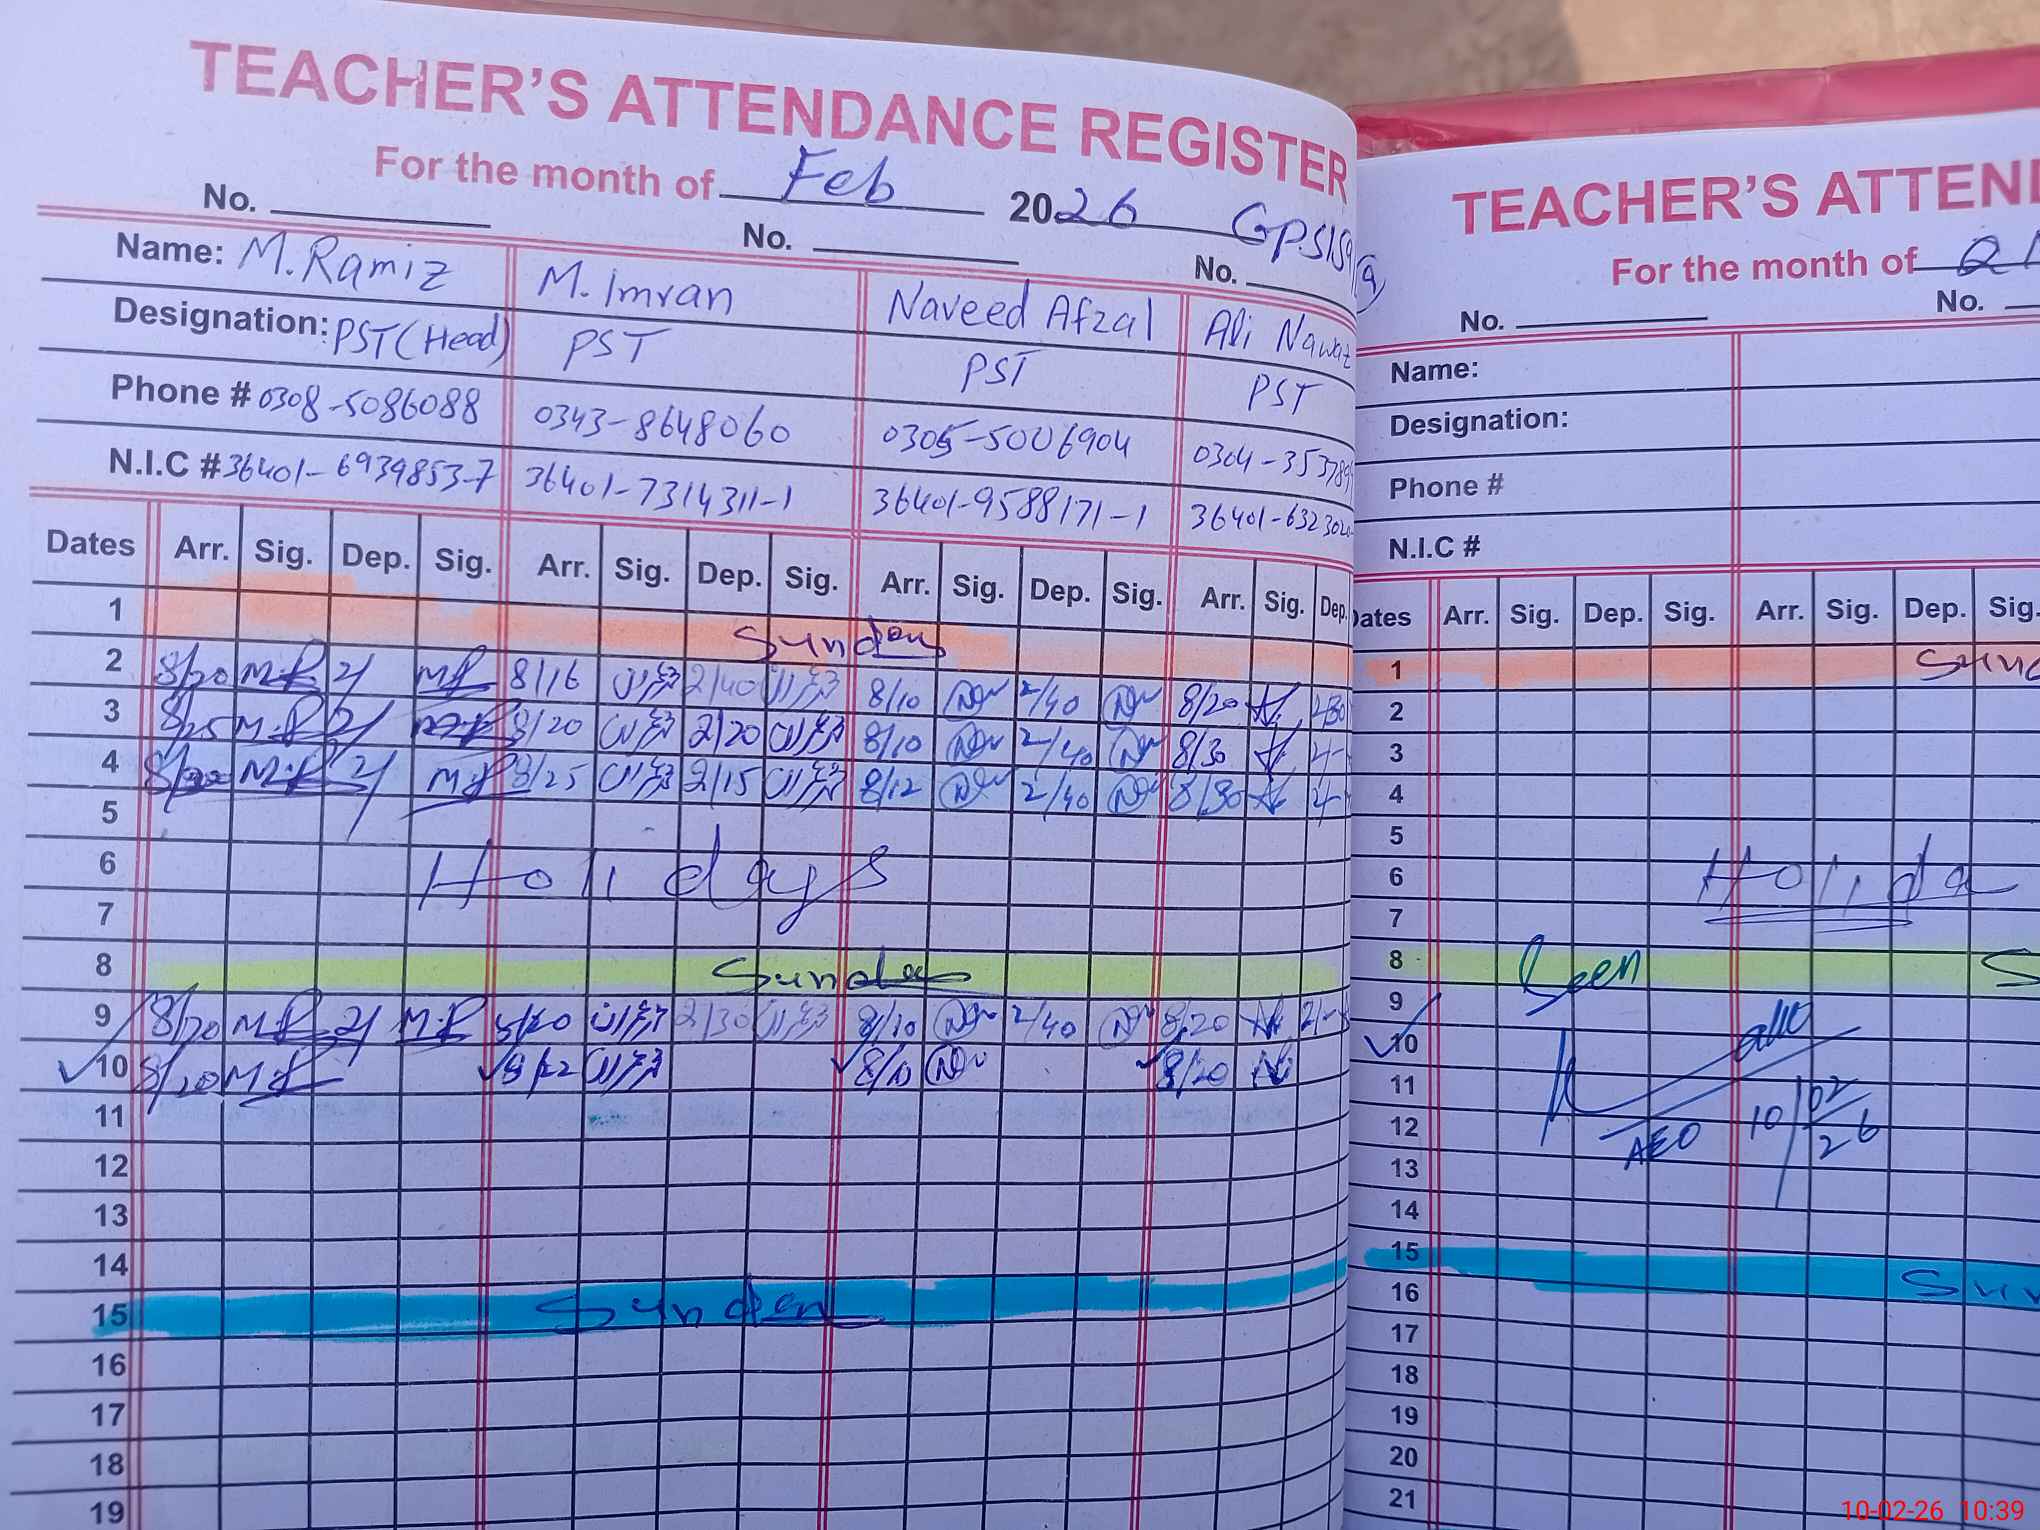 TEACHER'S ATTENDANCE REGISTER
For the month of Feb 2026
No. No. No.
Name: M.Ramiz M. Imran Naveed Afzal Ali Nawaz
Designation: PST(Head) PST PST PST
Phone # 0308-5086088 0343-8648060 0305-5006904 0304-35378
N.I.C # 36401-6939853-7 36401-7314311-1 36401-9588171-1 36401-632302
Dates Arr. Sig. Dep. Sig. Arr. Sig. Dep. Sig. Arr. Sig. Dep. Sig. Arr. Sig. Dep.
1 Sunday
2 8/20 M.R 2/ M.R 8/16 2/40 8/10 2/40 8/20
3 8/25 M.R 2/ 8/20 2/20 8/10 2/40 8/30
4 M.R 2/ M.R 8/25 2/15 8/12 2/40 8/30
5
6 Holidays
7
8 Sunday
9 8/20 M.R 2/ M.R 8/20 2/30 8/10 2/40 8/20
10 8/20 M.R 8/22 8/10 8/20
11
12
13
14
15 Sunday
16
17
18
19
TEACHER'S ATTEN
For the month of
No. No.
Name:
Designation:
Phone #
N.I.C #
Dates Arr. Sig. Dep. Sig. Arr. Sig. Dep. Sig.
1 Sund
2
3
4
5
6 Holida
7
8 Seen S
9
10
11
12 AEO 10/02/26
13
14
15
16 Sun
17
18
19
20
21
10-02-26 10:39